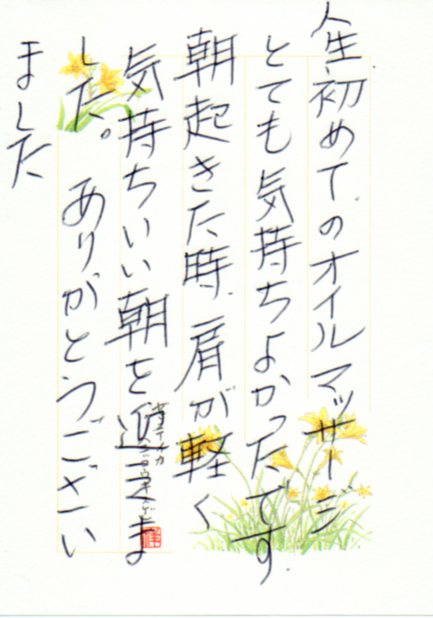 人生初めてのオイルマッサージ
とても気持ちよかったです
朝起きた時、肩が軽く
気持ちいい朝を過ごせま
した。ありがとうござい
ました